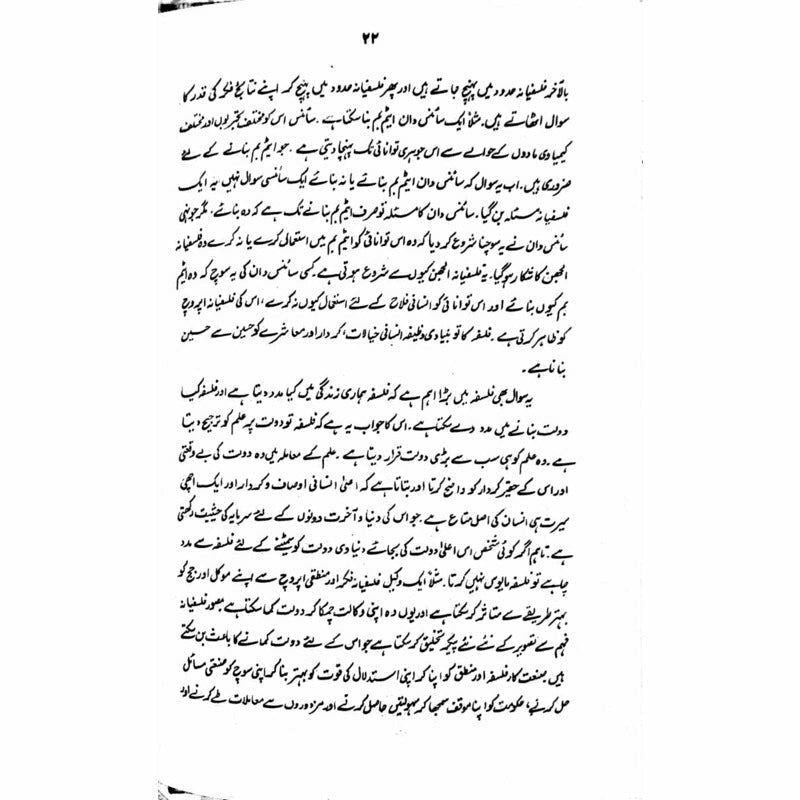 ۲۲
بالآخر فلسفیانہ حدود میں پہنچ جاتے ہیں اور پھر فلسفیانہ حدود میں پہنچ کر اپنے نتائج فکر کی قدر کا
سوال اٹھاتے ہیں۔ مثلاً ایک سائنس دان ایٹم بم بنا سکتا ہے۔ سائنس اس کو مختلف تجربوں اور مختلف
کیمیاوی مادوں کے حوالے سے اس جوہری توانائی تک پہنچا دیتی ہے۔ جو ایٹم بم بنانے کے لئے
ضروری ہیں۔ اب یہ سوال کہ سائنس دان ایٹم بم بنائے یا نہ بنائے ایک سائنسی سوال نہیں یہ ایک
فلسفیانہ مسئلہ بن گیا۔ سائنس دان کا مسئلہ تو صرف ایٹم بم بنانے تک ہے کہ وہ بنائے۔ مگر جونہی
سائنس دان نے یہ سوچنا شروع کر دیا کہ وہ اس توانائی کو ایٹم بم میں استعمال کرے یا نہ کرے وہ فلسفیانہ
الجھن کا شکار ہو گیا۔ یہ فلسفیانہ الجھن کیوں سے شروع ہوتی ہے۔ کسی سائنس دان کی یہ سوچ کہ وہ ایٹم
بم کیوں بنائے اور اس توانائی کو انسانی فلاح کے لئے استعمال کیوں نہ کرے، اس کی فلسفیانہ اپروچ
کو ظاہر کرتی ہے۔ فلسفہ کا تو بنیادی وظیفہ انسانی خیالات، کردار اور معاشرے کو حسین سے حسین
بنانا ہے۔
یہ سوال بھی فلسفہ میں بڑا اہم ہے کہ فلسفہ ہماری زندگی میں کیا مدد دیتا ہے اور فلسفہ کیا
دولت بنانے میں مدد دے سکتا ہے۔ اس کا جواب یہ ہے کہ فلسفہ تو دولت پہ علم کو ترجیح دیتا
ہے۔ وہ علم کو ہی سب سے بڑی دولت قرار دیتا ہے۔ علم کے معاملہ میں وہ دولت کی بے وقعتی
اور اس کے حقیر کردار کو واضح کرتا اور بتاتا ہے کہ اعلیٰ انسانی اوصاف و کردار اور ایک اچھی
سیرت ہی انسان کی اصل متاع ہے۔ جو اس کی دنیا و آخرت دونوں کے لئے سرمایہ کی حیثیت رکھتی
ہے۔ تاہم اگر کوئی شخص اس اعلیٰ دولت کی بجائے دنیاوی دولت کو سمیٹنے کے لئے فلسفہ سے مدد
چاہے تو فلسفہ مایوس نہیں کرتا۔ مثلاً ایک وکیل فلسفیانہ فکر اور منطقی اپروچ سے اپنے موکل اور جج کو
بہتر طریقے سے متاثر کر سکتا ہے اور یوں وہ اپنی وکالت چمکا کر دولت کما سکتا ہے مصور فلسفیانہ
فہم سے تصویر کے نئے نئے پیکر تخلیق کر سکتا ہے جو اس کے لئے دولت کمانے کا باعث بن سکتے
ہیں۔ صنعت کار فلسفہ اور منطق کو اپنا کر اپنی استدلال کی قوت کو بہتر بنا کر اپنی سوچ کو صنعتی مسائل
حل کرنے، حکومت کو اپنا موقف سمجھا کر سہولتیں حاصل کرنے اور مزدوروں سے معاملات طے کرنے اور